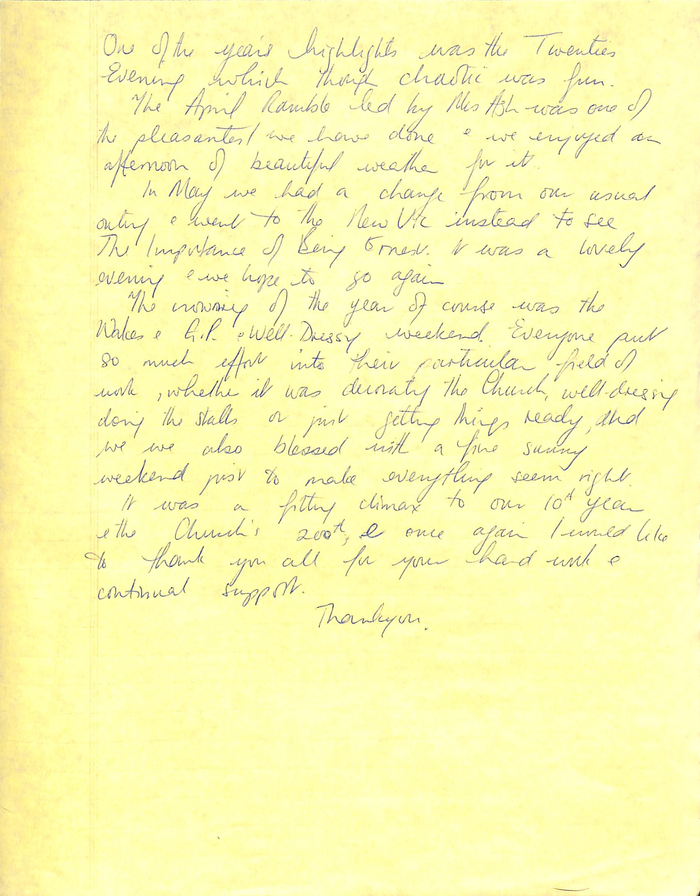 One of the year's highlights was the Twenties
Evening which though chaotic was fun.
The April Ramble led by Mrs Ash was one of
the pleasantest we have done & we enjoyed an
afternoon of beautiful weather for it.
In May we had a change from our usual
outing & went to the New Vic instead to see
The Importance of Being Ernest. It was a lovely
evening & we hope to go again
The crowning of the year of course was the
Wakes & G.P. & Well-Dressg weekend. Everyone put
so much effort into their particular field of
work, whether it was decoratg the Church, well-dressing
doing the stalls or just getting things ready, and
we we also blessed with a fine sunny
weekend just to make everything seem right.
It was a fitting climax to our 10th year
& the Church's 200th, & once again I would like
to thank you all for your hard work &
continual support.
Thankyou.